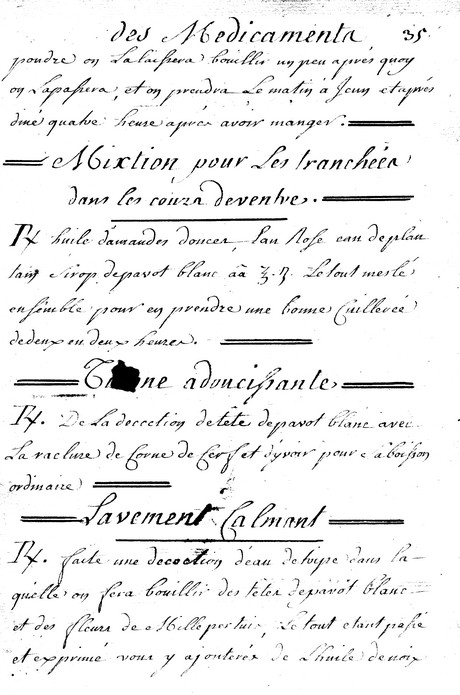 des Medicaments 35
poudre on La laissera bouillir un peu aprés quoy
on Lapassera, et on prendra Le matin à Jeun et après
diné quatre heure aprés avoir manger.
Mixtion pour Les tranchées
dans les cours deventre.
R huile damandes douces, Eau Rose eau de plan
tain Sirop depavot blanc aā ℥. Le tout meslé
ensemble pour en prendre une bonne Cuillerée
dedeux en deux heures.
adoucissante
R. De La decoction de tête depavot blanc avec
La raclure de Corne de Cerf et dyvoir pour boisson
ordinaire
Lavement Calmant
R. faite une decoction deau detripe dans la
quelle on fera bouillir des tetes depavot blanc
et des fleurs de Millepertuis, Le tout etant passé
et exprimé vous y ajouterés de Lhuile de noix